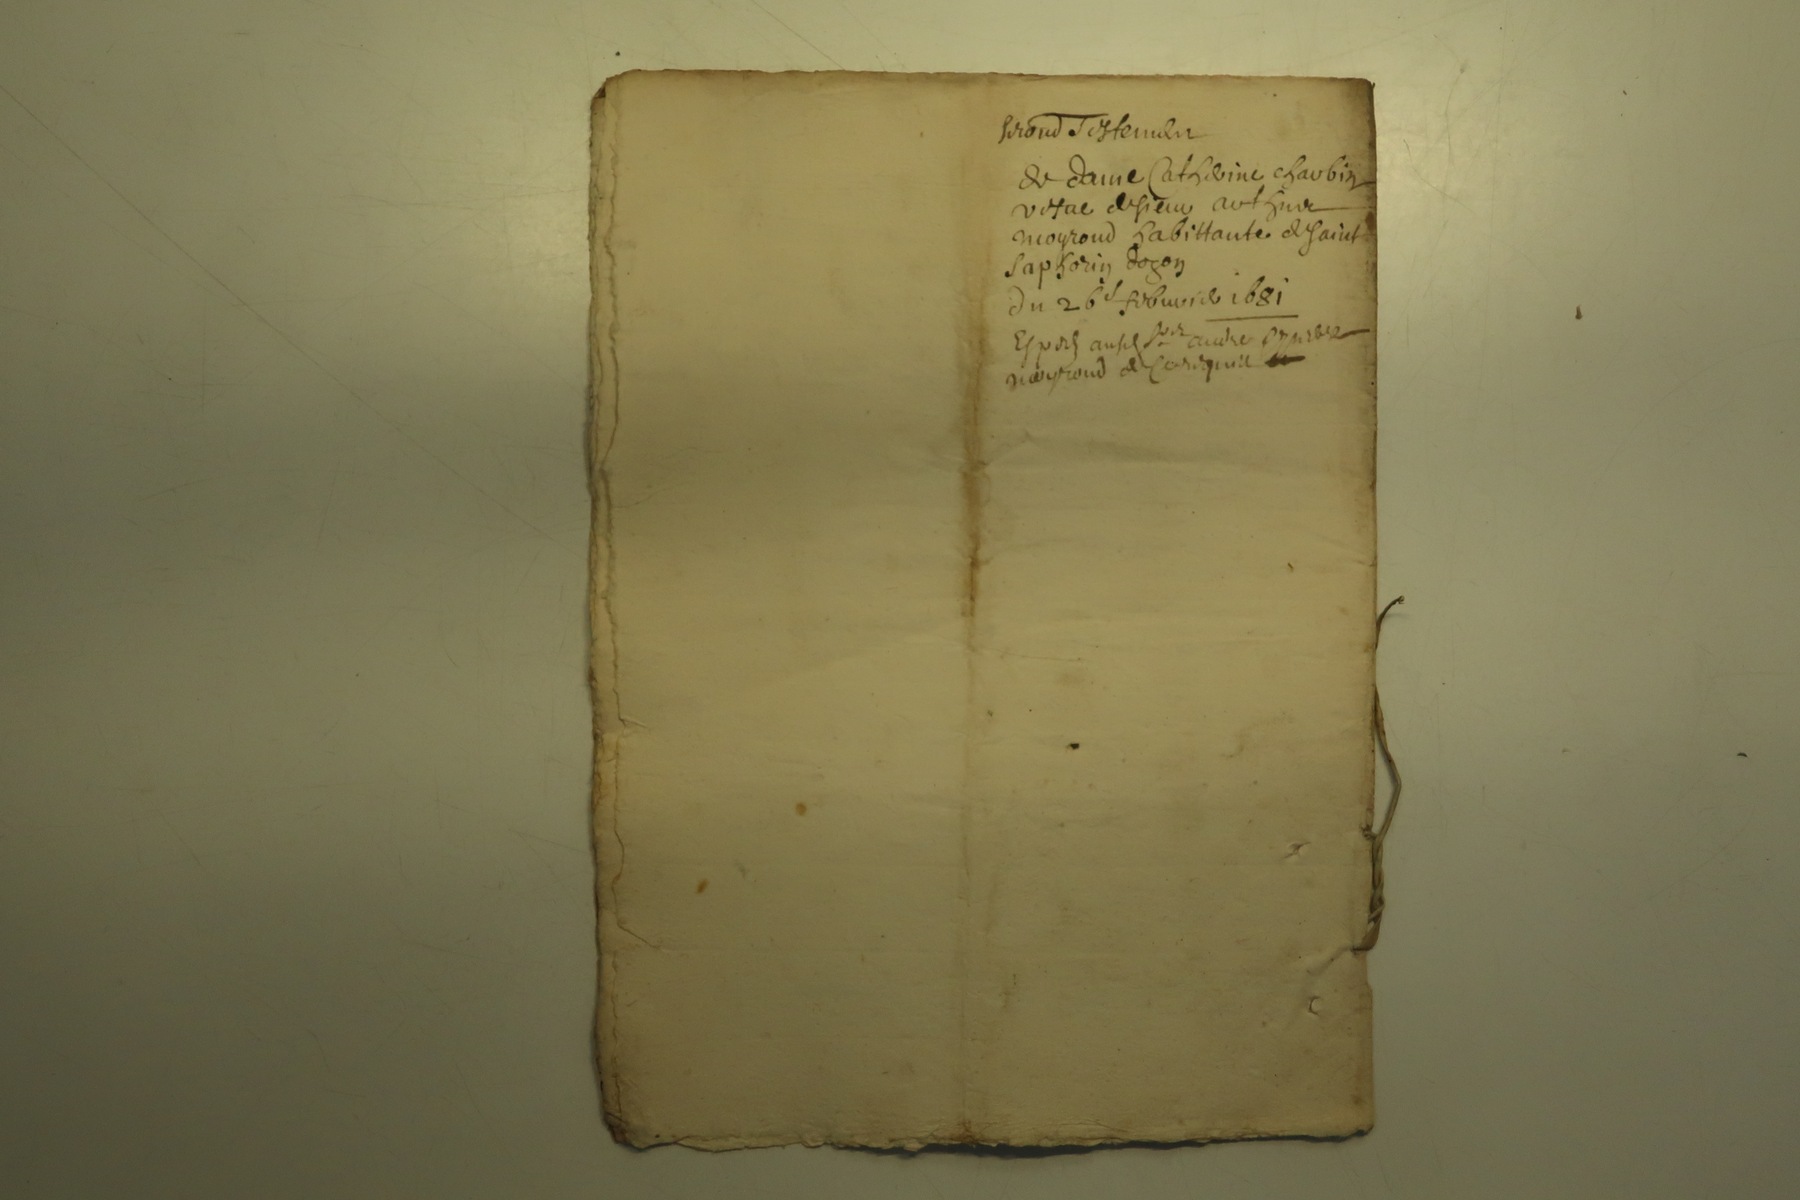 second Testement
de dame Catherine charbin
vefve de sieur arthur
moyroud habittante de saint
saphorin dozon
du 26e febvrier 1681
andre
moyroud de